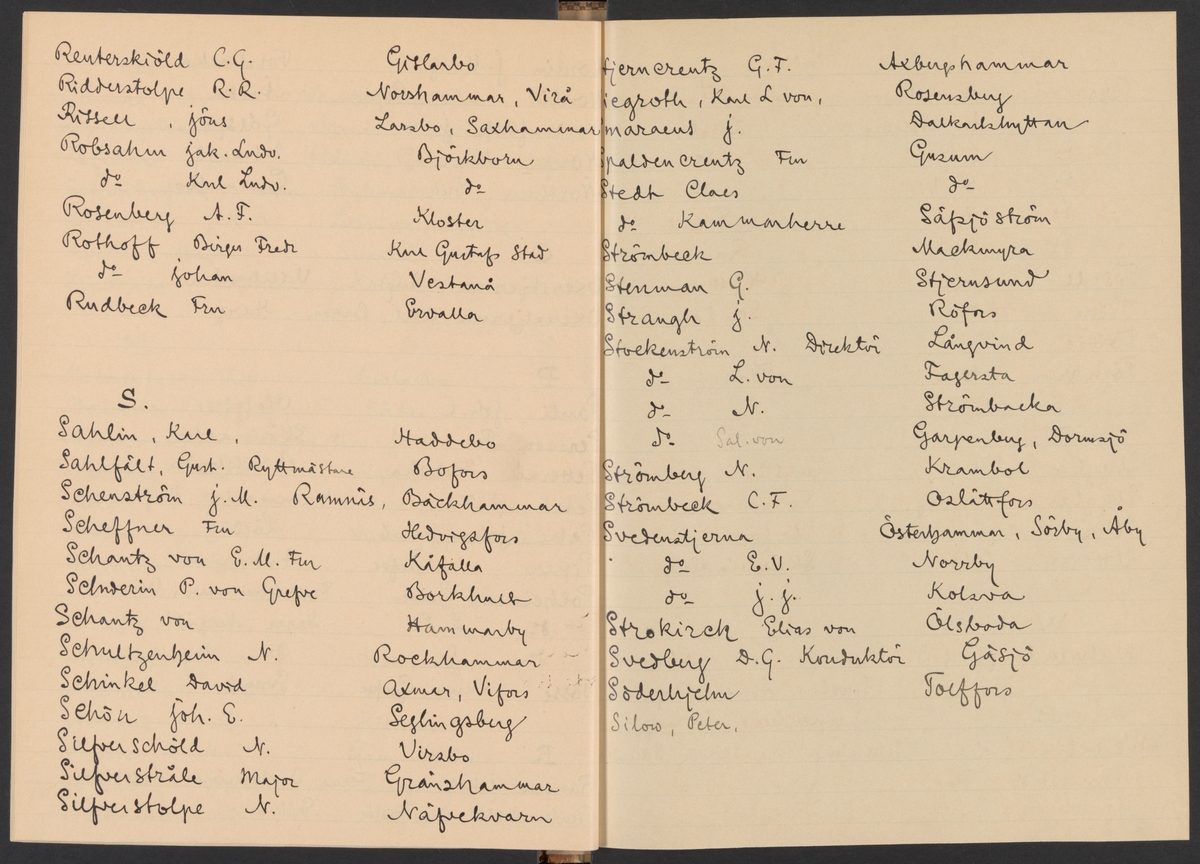 Reuterskiöld C.G. Gislarbo
Ridderstolpe R.R. Norshammar, Virå
Rissell, Jöns Larsbo, Saxhammar
Robsahm Jak. Ludv. Björkborn
do Karl Ludv. do
Rosenberg A.F. Kloster
Rothoff Birger Fredr Karl Gustafs Stad
do Johan Vestanå
Rudbeck Fru Ervalla
S.
Sahlin, Karl, Haddebo
Sahlfält, Gust. Ryttmästare Bofors
Schenström J.M. Ramnäs, Bäckhammar
Scheffner Fru Hedvigsfors
Schantz von E.M. Fru Kåfalla
Schverin P. von Grefve Borkhult
Schantz von Hammarby
Schultzenheim N. Rockhammar
Schinkel David Axmar, Vifors
Schön Joh. E. Seglingsberg
Silfverschöld N. Virsbo
Silfverstråle Major Gränshammar
Silfverstolpe N. Näfvekvarn
tjerncreutz G.F. Axbergshammar
iegroth, Karl L von, Rosensberg
maraeus J. Dalkarlshyttan
Spaldencreutz Fru Gusum
Stedt Claes do
do Kammarherre Säfsjöström
Strömbeck Mackmyra
Stenman G. Stjernsund
Strangh J. Röfors
Stockenström N. Direktör Långvind
do L. von Fagersta
do N. Strömbacka
do Sal. von Garpenberg, Dormsjö
Strömberg N. Krambol
Strömbeck C.F. Oslättfors
Svedenstjerna Österhammar, Sörby, Åby
do E.V. Norrby
do J.J. Kolsva
Strokirck Elias von Ölsboda
Svedberg D.G. Konduktör Gåsjö
Söderhjelm Tolffors
Silow, Peter,